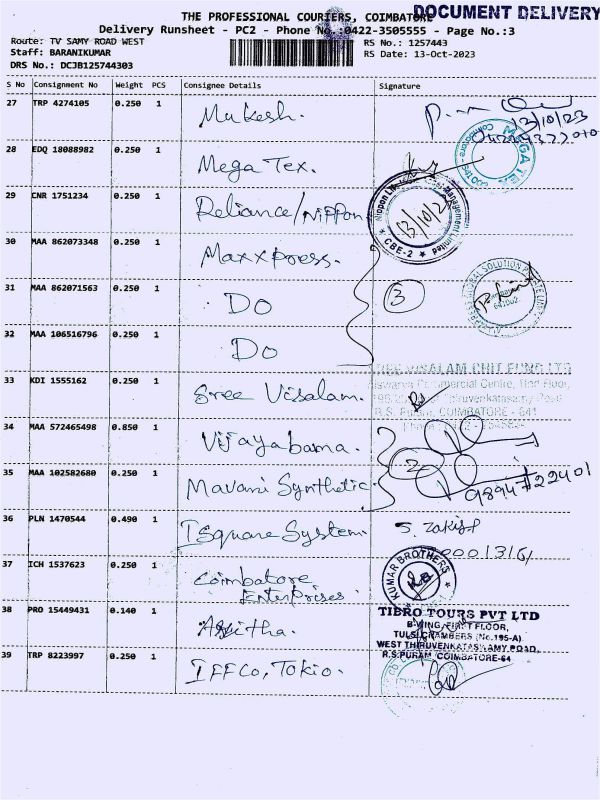 THE PROFESSIONAL COURIERS, COIMBATORE
DOCUMENT DELIVERY
Delivery Runsheet - PC2 - Phone No.:0422-3505555 - Page No.:3
Route: TV SAMY ROAD WEST
RS No.: 1257443
Staff: BARANIKUMAR
RS Date: 13-Oct-2023
DRS No.: DCJB125744303
S No Consignment No Weight PCS Consignee Details Signature
27 TRP 4274105 0.250 1 Mukesh.
13/10/23
28 EDQ 18088982 0.250 1 Mega Tex.
MEGA TEX
Coimbatore
29 CNR 1751234 0.250 1 Reliance/Nippon
Management Limited
13/10/23
★ CBE-2 ★
30 MAA 862073348 0.250 1 Maxxpress.
31 MAA 862071563 0.250 1 Do
3
GLOBAL SOLUTION PRIVATE LIMITED
32 MAA 106516796 0.250 1 Do
SREE VISALAM CHIT FUND LTD
33 KDI 1555162 0.250 1 Sree Visalam.
Commercial Centre, Third Floor,
Thiruvenkatasamy Road
R.S. Puram, COIMBATORE - 641
34 MAA 572465498 0.850 1 Vijayabama.
2
35 MAA 102582680 0.250 1 Mavami Synthetic.
9894722401
36 PLN 1470544 0.490 1 Isquare System.
S. Zakir
37 ICH 1537623 0.250 1 Coimbatore
Enterprises.
KUMAR BROTHERS
38 PRO 15449431 0.140 1
TIBRO TOURS PVT LTD
B-WING, FIRST FLOOR,
TULSI CHAMBERS (No.195-A)
WEST THIRUVENKATASWAMY ROAD,
R.S.PURAM, COIMBATORE-64
39 TRP 8223997 0.250 1 IFFCO, Tokio.